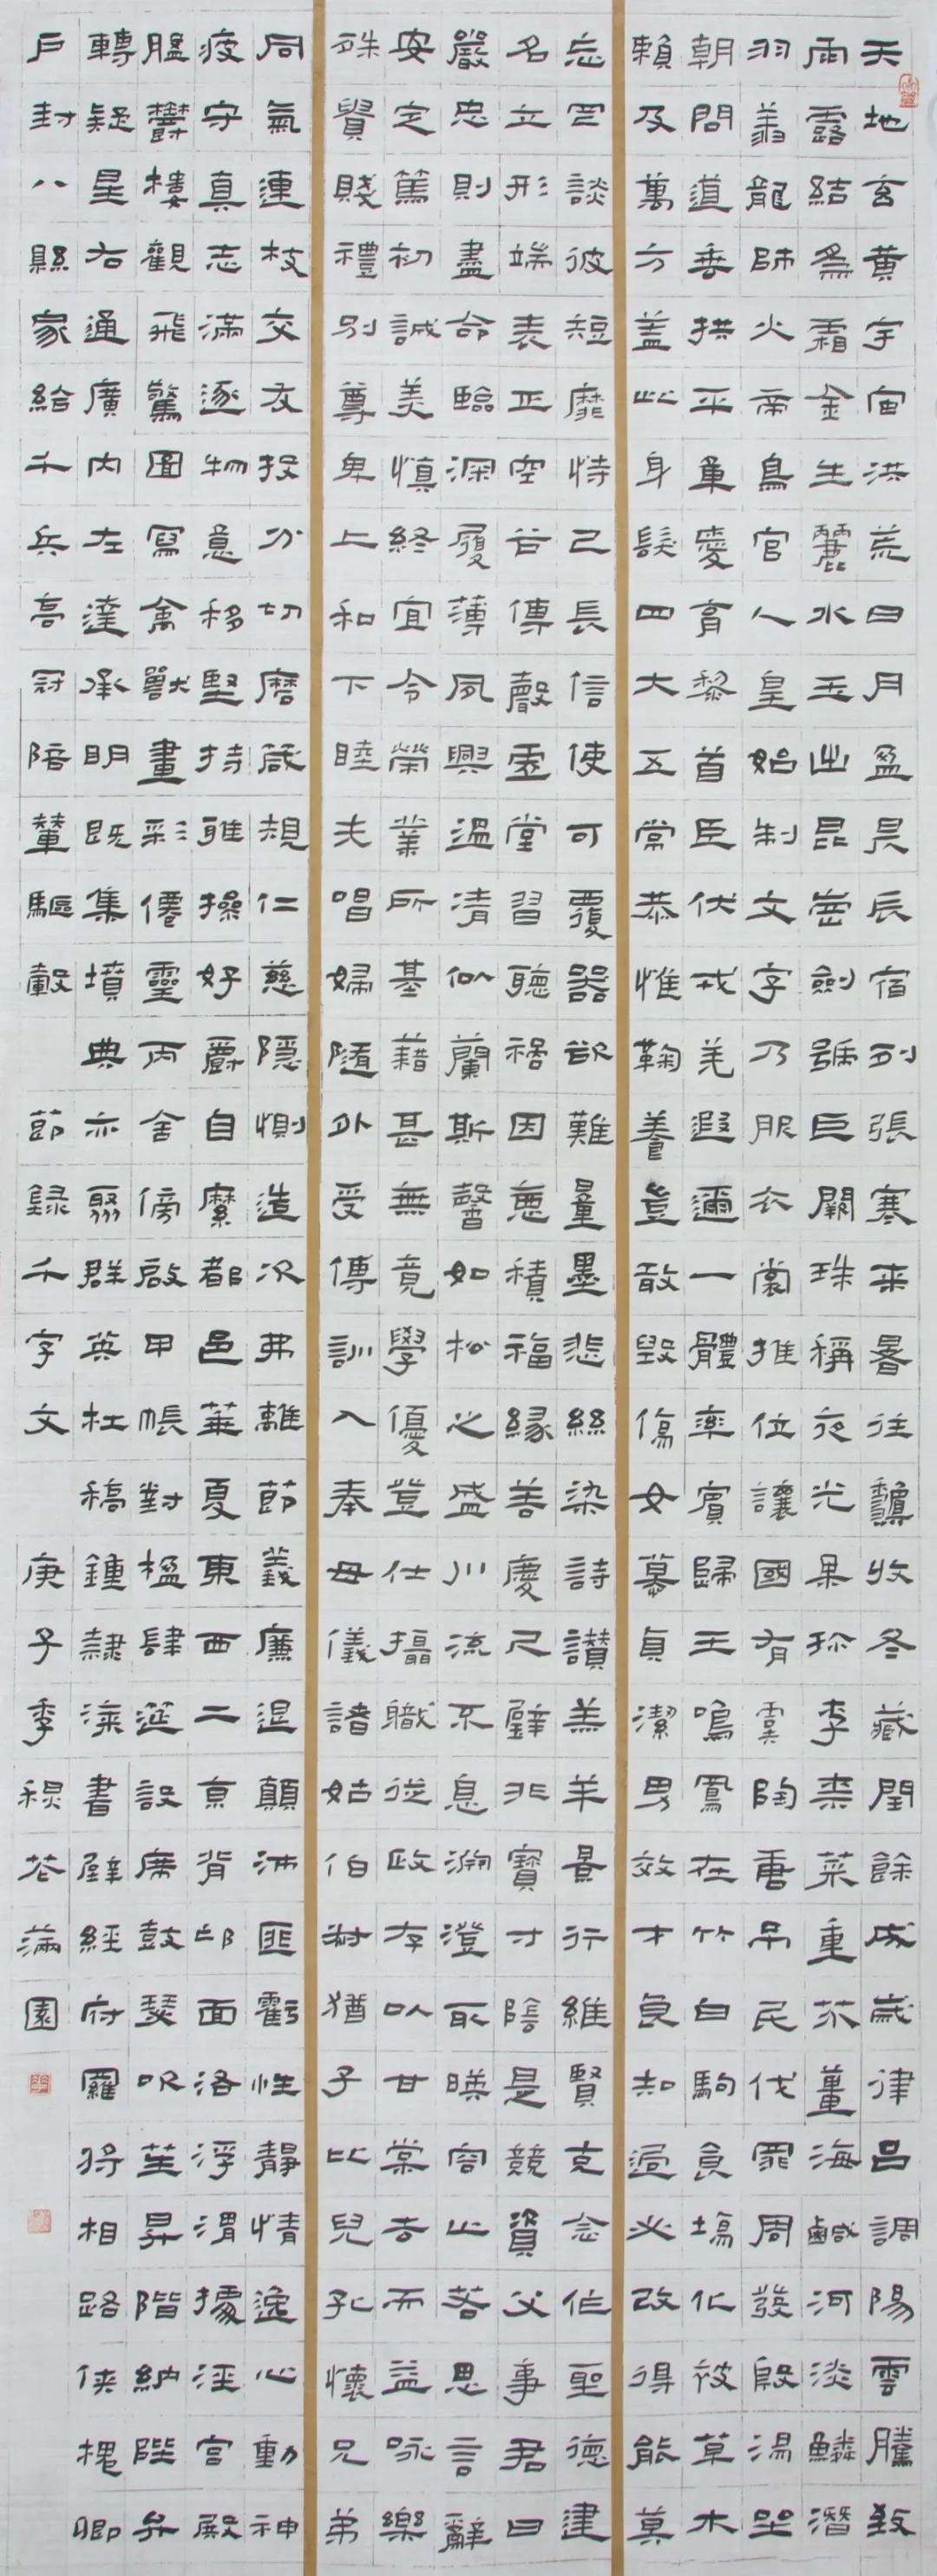 天地玄黃宇宙洪荒日月盈昃辰宿列張寒來暑往龝收冬藏閏餘成歲律呂調陽雲騰致
雨露結為霜金生麗水玉出崑崗劍號巨闕珠稱夜光果珍李柰菜重芥薑海鹹河淡鱗潛
羽翔龍師火帝鳥官人皇始制文字乃服衣裳推位讓國有虞陶唐弔民伐罪周發殷湯坐
朝問道垂拱平章愛育黎首臣伏戎羌遐邇一體率賓歸王鳴鳳在竹白駒食場化被草木
賴及萬方蓋此身髮四大五常恭惟鞠養豈敢毀傷女慕貞潔男效才良知過必改得能莫
忘罔談彼短靡恃己長信使可覆器欲難量墨悲絲染詩讚羔羊景行維賢克念作聖德建
名立形端表正空谷傳聲虛堂習聽禍因惡積福緣善慶尺璧非寶寸陰是競資父事君曰
嚴忠則盡命臨深履薄夙興溫清似蘭斯馨如松之盛川流不息淵澄取暎容止若思言辭
安定篤初誠美慎終宜令榮業所基藉甚無竟學優登仕攝職從政存以甘棠去而益詠樂
殊貴賤禮別尊卑上和下睦夫唱婦隨外受傅訓入奉母儀諸姑伯叔猶子比兒孔懷兄弟
同氣連枝交友投分切磨箴規仁慈隱惻造次弗離節義廉退顛沛匪虧性靜情逸心動神
疲守真志滿逐物意移堅持雅操好爵自縻都邑華夏東西二京背邙面洛浮渭據涇宮殿
盤鬱樓觀飛驚圖寫禽獸畫彩僊靈丙舍傍啟甲帳對楹肆筵設席鼓瑟吹笙昇階納陛弁
轉疑星右通廣內左達承明既集墳典亦聚群英杜稿鍾隸漆書壁經府羅將相路俠槐卿
戶封八縣家給千兵高冠陪輦驅轂 節錄千字文 庚子季花滿園